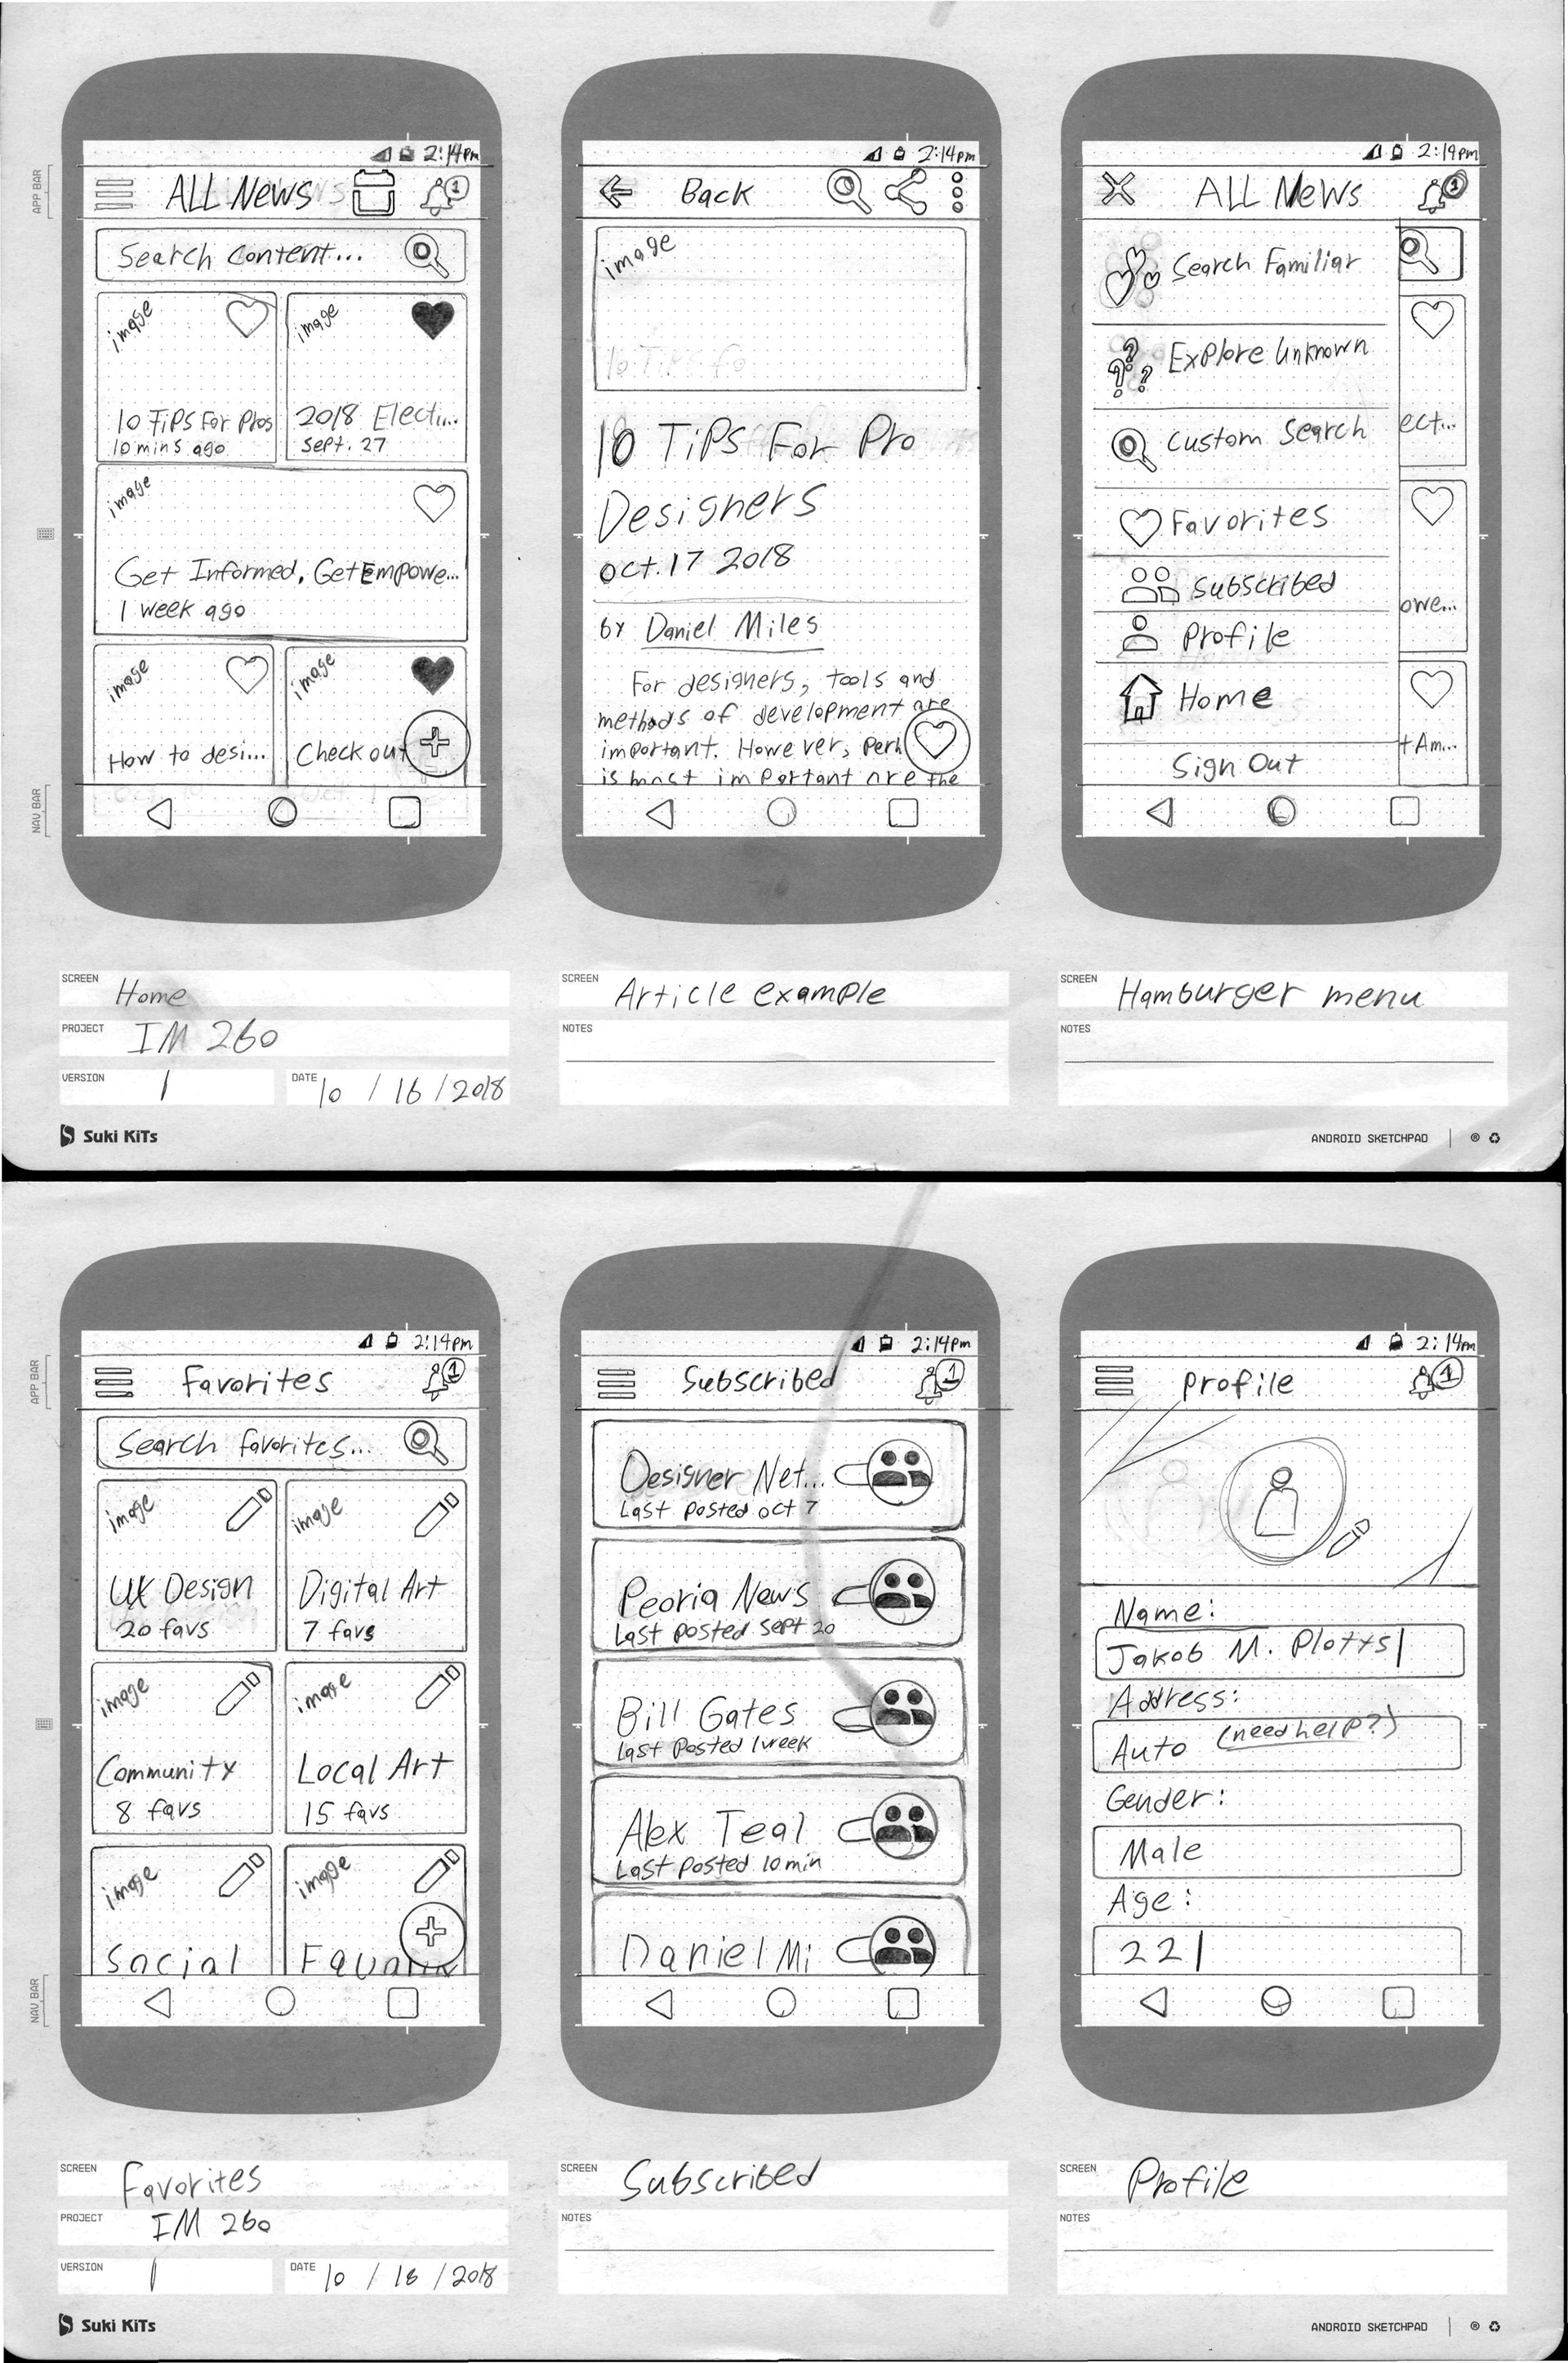 2:14pm
ALL News
1
Search Content...
image
image
10 Tips For Pros
10 mins ago
2018 Electi...
Sept. 27
image
Get Informed, Get Empowe...
1 week ago
image
image
How to desi...
Check out
APP BAR
NAV BAR
2:14pm
Back
image
10 Tips For Pro
Designers
Oct. 17 2018
by Daniel Miles
For designers, tools and
methods of development are
important. However, Perh
is most important are the
2:14pm
ALL News
1
Search Familiar
Explore Unknown
Custom Search
Favorites
Subscribed
Profile
Home
Sign Out
ect...
owe...
t Am...
SCREEN Home
PROJECT IM 260
VERSION 1
DATE 10 / 16 / 2018
SCREEN Article example
NOTES
SCREEN Hamburger menu
NOTES
Suki KiTs
ANDROID SKETCHPAD
2:14pm
Favorites
1
Search favorites...
image
image
UX Design
20 favs
Digital Art
7 favs
image
image
Community
8 favs
Local Art
15 favs
image
image
Social
APP BAR
NAV BAR
2:14pm
Subscribed
1
Designer Net...
Last posted Oct 7
Peoria News
Last posted Sept 20
Bill Gates
Last Posted 1 week
Alex Teal
Last posted 10 min
Daniel Mi
2:14pm
Profile
1
Name:
Jakob M. Plotts
Address:
Auto (need help?)
Gender:
Male
Age:
22
SCREEN Favorites
PROJECT IM 260
VERSION 1
DATE 10 / 18 / 2018
SCREEN Subscribed
NOTES
SCREEN Profile
NOTES
Suki KiTs
ANDROID SKETCHPAD